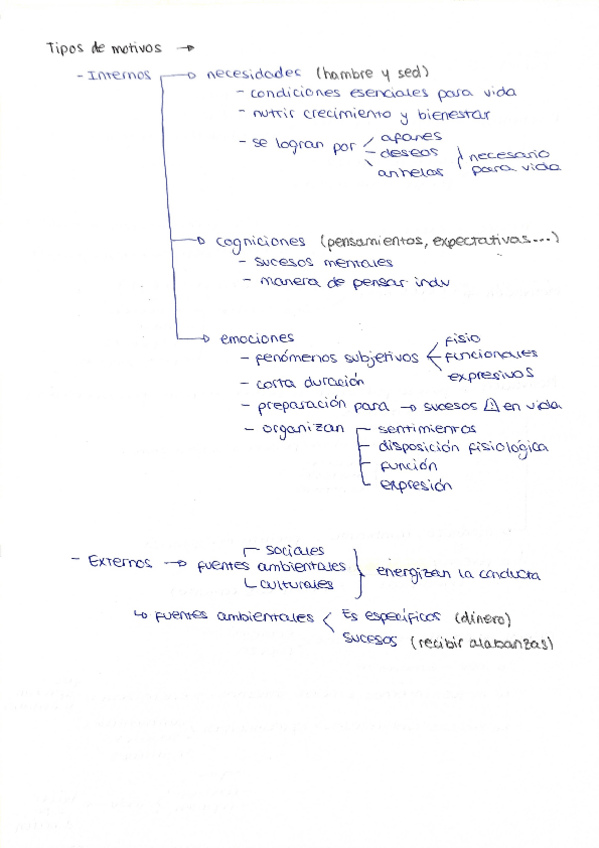 Tipos de motivos →
- Internos → necesidades (hambre y sed)
- condiciones esenciales para vida
- nutrir crecimiento y bienestar
- se logran por
afanes
- deseos
anhelos
necesario
para vida
→ cogniciones (pensamientos, expectativas...)
- sucesos mentales
- manera de pensar indv
→ emociones
- fenómenos subjetivos
fisio
funcionales
expresivos
- corta duración
- preparación para → sucesos ⚠ en vida
- organizan
sentimientos
disposición fisiológica
función
expresión
- Externos → fuentes ambientales
sociales
culturales
energizan la conducta
↳ fuentes ambientales
Es específicos (dinero)
sucesos (recibir alabanzas)